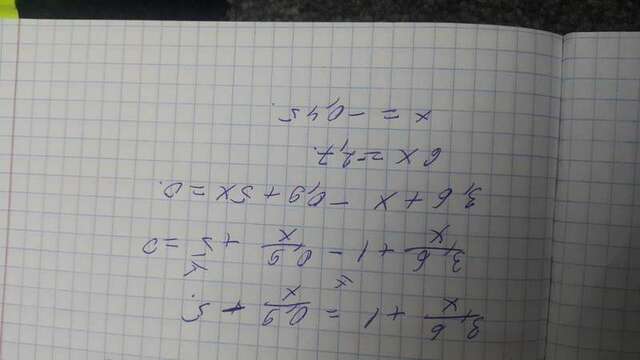 3,6/x + 1 = 0,9/x + 5.
3,6/x + 1 - 0,9/x + 5 = 0
3,6 + x - 0,9 + 5x = 0.
6x = -2,7.
x = -0,45.